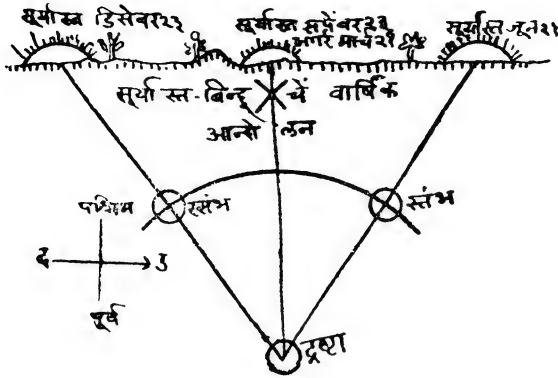 सूर्यास्त डिसेंबर २३
सूर्यास्त सप्टेंबर २३
मार्च २१
सूर्यास्त जून २१
सूर्यास्त-बिन्दू चें वार्षिक
आन्दोलन
पश्चिम
स्तंभ
स्तंभ
द
उ
पूर्व
द्रष्टा